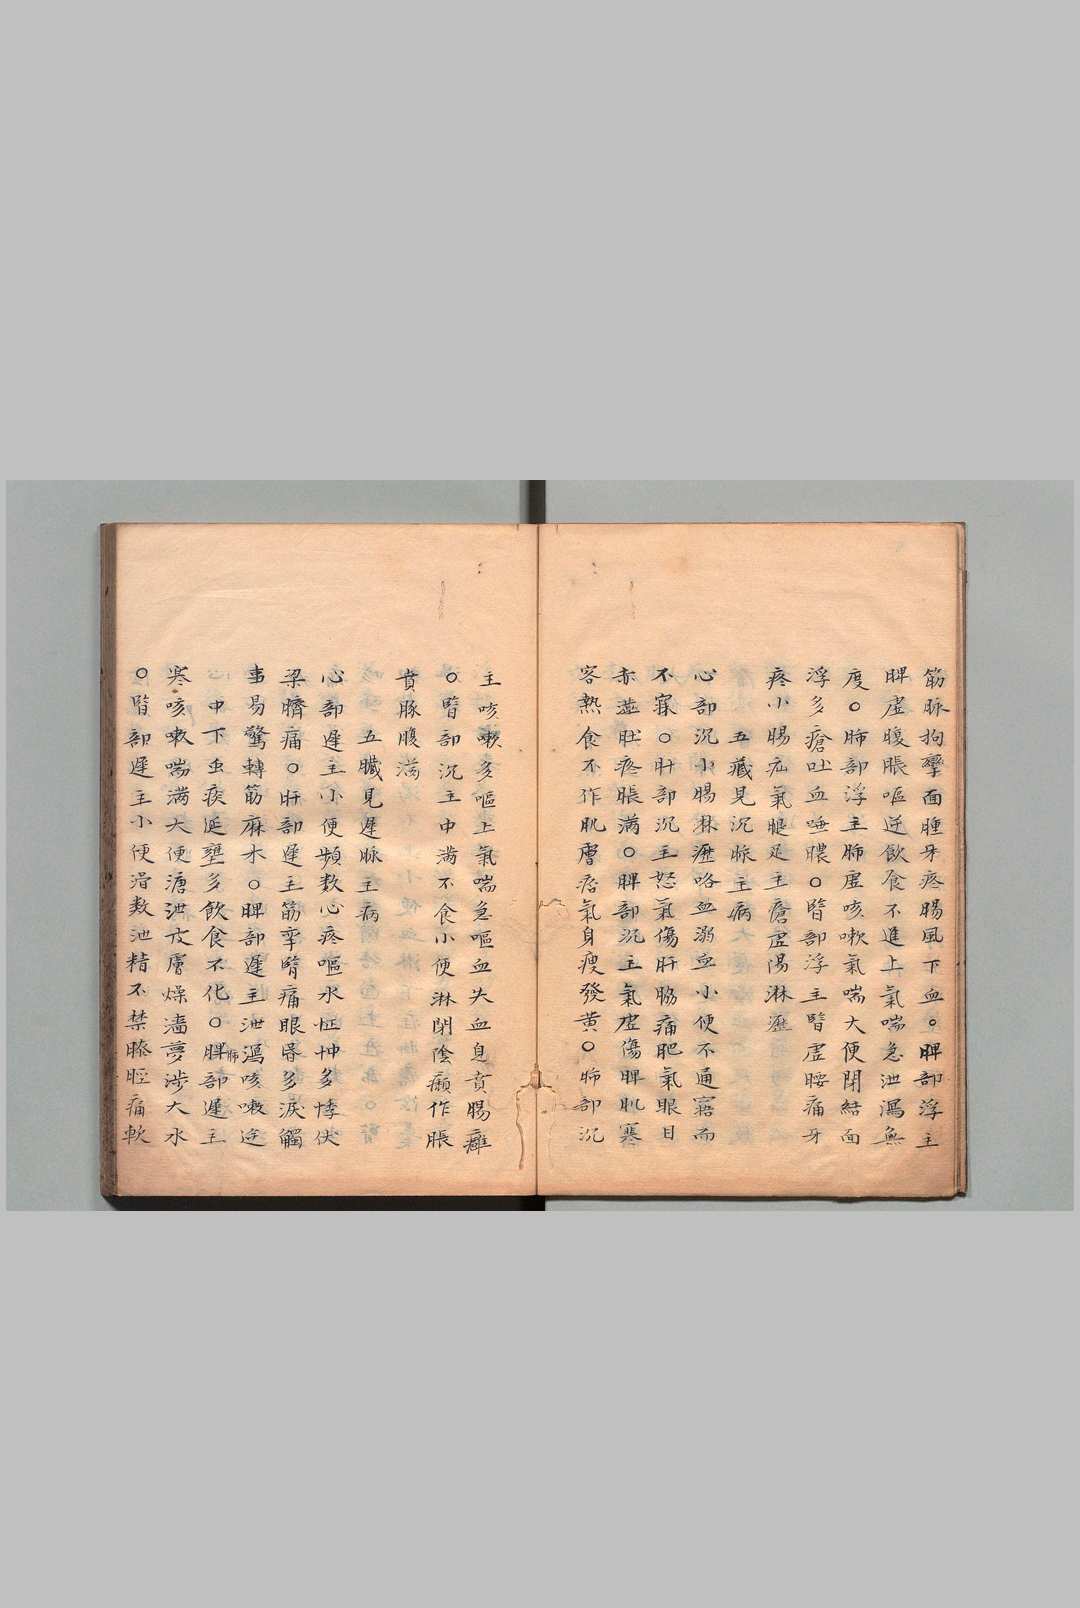 筋脉拘攣面腫牙疼腸風下血○脾部浮主
脾虚腹脹嘔逆飲食不進上氣喘急泄瀉無
度○肺部浮主肺虚咳嗽氣喘大便閉結面
浮多瘡吐血唾膿○腎部浮主腎虚腰痛牙
疼小腸疝氣腿足主瘡虚陽淋瀝
五藏見沉脉主病
心部沉小腸淋瀝咯血溺血小便不通寤而
不寐○肝部沉主怒氣傷肝脇痛肥氣眼目
赤澁肚疼脹滿○脾部沉主氣虚傷脾肌寒
客熱食不作肌膚痞氣身瘦發黄○肺部沉
主咳嗽多嘔上氣喘急嘔血失血息賁腸癰
○腎部沉主中滿不食小便淋閉陰癩作脹
賁豚腹滿
五臟見遲脉主病
心部遲主小便頻数心疼嘔水怔忡多悸伏
梁臍痛○肝部遲主筋孪腎痛眼昏多淚觸
事易驚轉筋麻木○脾部遲主泄瀉咳嗽逆
心中下虫痰涎壅多飲食不化○脾部遲主
肺
寒咳嗽喘满大便溏泄皮膚燥濇夢涉大水
○腎部遲主小便滑数泄精不禁膝脛痛軟